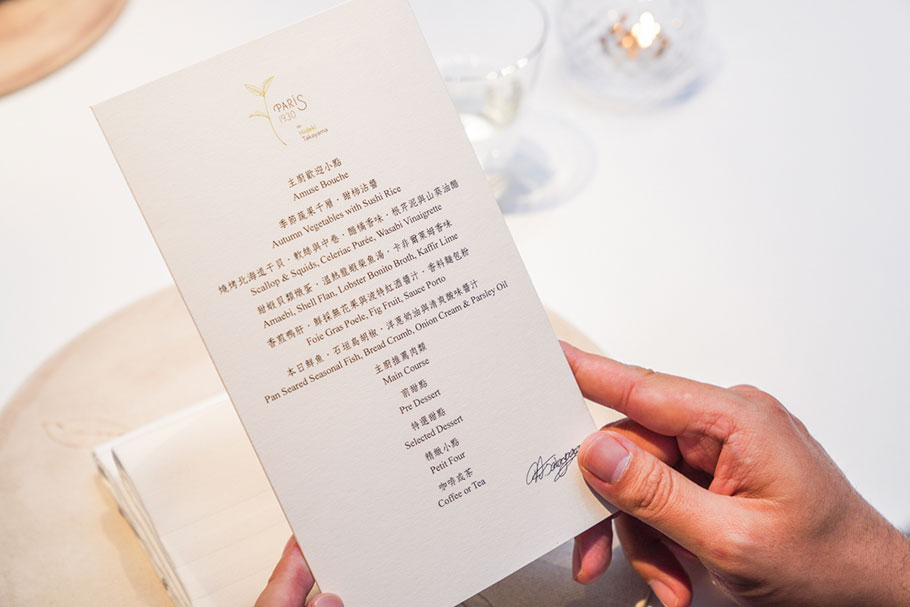 PARIS
1930
de
Hideki
Takayama
主廚歡迎小點
Amuse Bouche
季節蔬果千層·甜柿沾醬
Autumn Vegetables with Sushi Rice
燒烤北海道干貝·軟絲與中卷·醋橘香味·根芹泥與山葵油醋
Scallop & Squids, Celeriac Purée, Wasabi Vinaigrette
甜蝦貝類燉蛋·溫熱龍蝦柴魚湯·卡非爾萊姆香味
Amaebi, Shell Flan, Lobster Bonito Broth, Kaffir Lime
香煎鴨肝·鮮採無花果與波特紅酒醬汁·香料麵包粉
Foie Gras Poele, Fig Fruit, Sauce Porto
本日鮮魚·石垣島胡椒·洋蔥奶油與清爽酸味醬汁
Pan Seared Seasonal Fish, Bread Crumb, Onion Cream & Parsley Oil
主廚推薦肉類
Main Course
前甜點
Pre Dessert
特選甜點
Selected Dessert
精緻小點
Petit Four
咖啡或茶
Coffee or Tea